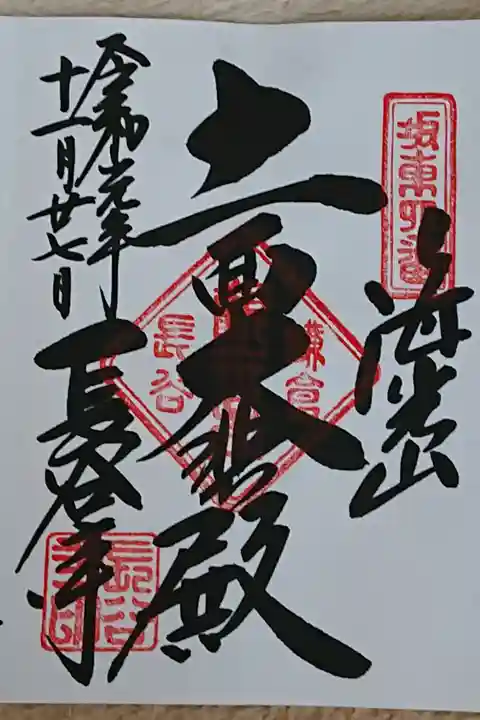 坂東四番
海光山
十一面大悲殿
鎌倉
長谷
令和元年
十一月廿七日
長谷寺
長谷
寺印